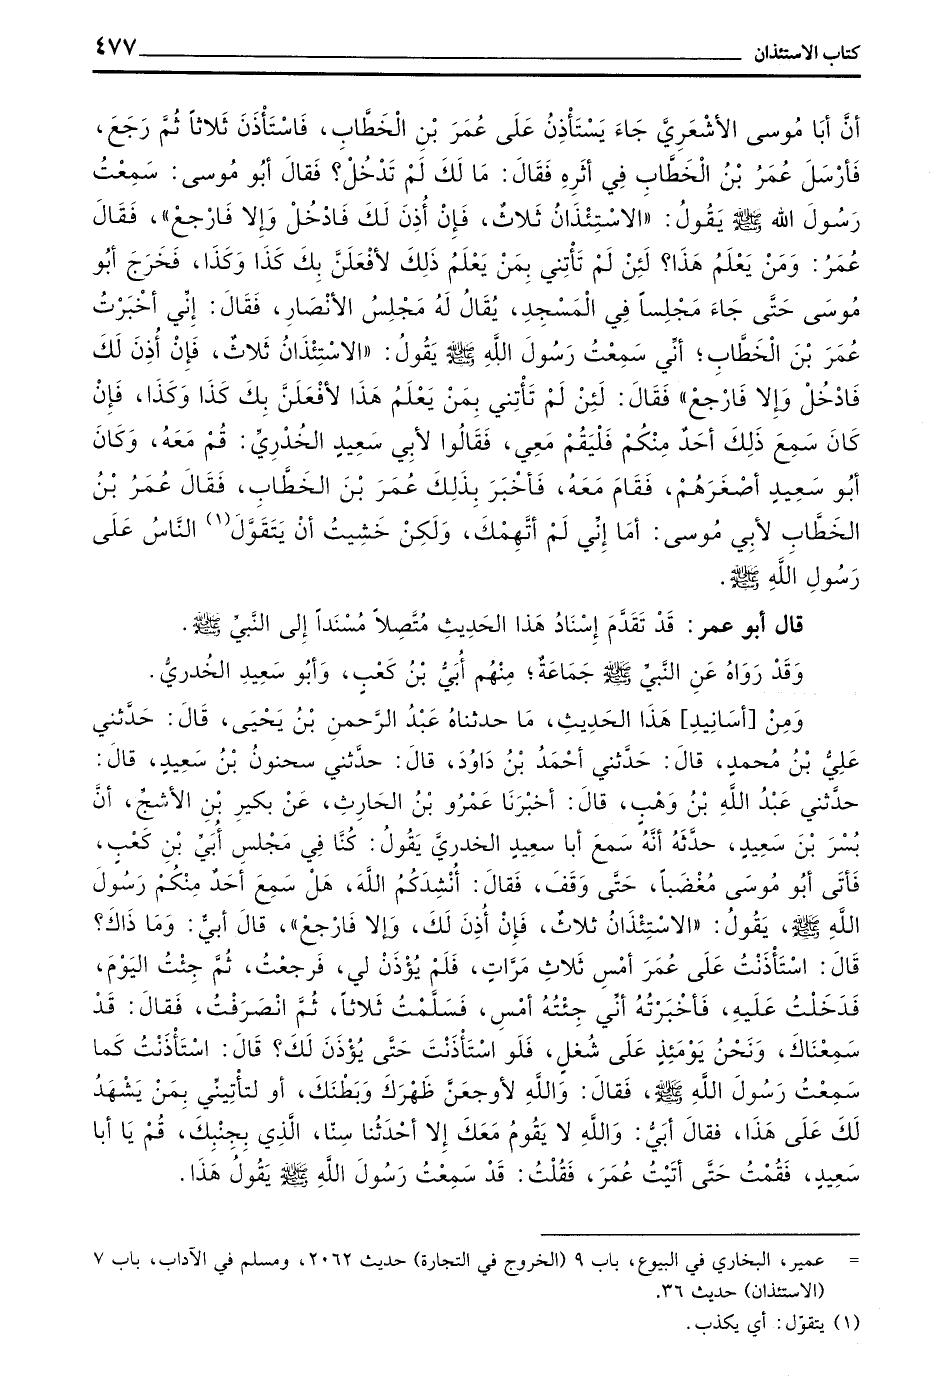 كتاب الاستئذان ٤٧٧
أنَّ أبَا مُوسى الأشْعَرِيَّ جَاءَ يَسْتَأْذِنُ عَلَى عُمَرَ بْنِ الْخَطَّابِ، فَاسْتَأْذَنَ ثَلاثاً ثُمَّ رَجَعَ،
فَأرْسَلَ عُمَرُ بْنُ الْخَطَّابِ فِي أثَرِهِ فَقَالَ: مَا لَكَ لَمْ تَدْخُلْ؟ فَقالَ أبُو مُوسى: سَمِعْتُ
رَسُولَ الله ﷺ يَقُولُ: «الاسْتِئْذَانُ ثَلاثٌ، فَإنْ أُذِنَ لَكَ فَادْخُلْ وَإلا فَارْجعْ»، فَقَالَ
عُمَرُ: وَمَنْ يَعْلَمُ هَذَا؟ لَئِنْ لَمْ تَأْتِني بِمَنْ يَعْلَمُ ذَلِكَ لأفْعَلَنَّ بِكَ كَذَا وَكَذَا، فَخَرَجَ أبُو
مُوسَى حَتَّى جَاءَ مَجْلِساً فِي الْمَسْجِدِ، يُقَالُ لَهُ مَجْلِسُ الأنْصَارِ، فَقَالَ: إنِّي أخْبَرْتُ
عُمَرَ بْنَ الْخَطَّابِ؛ أنِّي سَمِعْتُ رَسُولَ اللَّهِ ﷺ يَقُولُ: «الاسْتِئْذَانُ ثَلاثٌ، فَإنْ أُذِنَ لَكَ
فَادْخُلْ وَإلا فَارْجعْ» فَقَالَ: لَئِنْ لَمْ تَأْتِني بِمَنْ يَعْلَمُ هَذَا لأفْعَلَنَّ بِكَ كَذَا وَكَذَا، فَإنْ
كَانَ سَمِعَ ذَلِكَ أحَدٌ مِنْكُمْ فَلْيَقُمْ مَعِي، فَقَالُوا لأبِي سَعِيدٍ الخُدْرِيِّ: قُمْ مَعَهُ، وَكَانَ
أبُو سَعِيدٍ أصْغَرَهُمْ، فَقَامَ مَعَهُ، فَأخْبَرَ بِذَلِكَ عُمَرَ بْنَ الخَطَّابِ، فَقَالَ عُمَرُ بْنُ
الخَطَّابِ لأبِي مُوسى: أمَا إنِّي لَمْ أتَّهِمْكَ، وَلَكِنْ خَشِيتُ أنْ يَتَقَوَّلَ(١) النَّاسُ عَلَى
رَسُولِ اللَّهِ ﷺ.
قال أبو عمر: قَدْ تَقَدَّمَ إسْنَادُ هَذا الحَدِيثِ مُتَّصِلاً مُسْنَداً إلى النَّبِيِّ ﷺ.
وَقَدْ رَوَاهُ عَنِ النَّبِيِّ ﷺ جَمَاعَةٌ؛ مِنْهُم أُبَيُّ بْنُ كَعْبٍ، وَأبُو سَعِيدٍ الخُدريُّ.
وَمِنْ [أسَانِيدِ] هَذَا الحَدِيثِ، مَا حدثناهُ عَبْدُ الرَّحمنِ بْنُ يَحْيَى، قَالَ: حَدَّثني
عَلِيُّ بْنُ مُحمدٍ، قالَ: حَدَّثني أحْمَدُ بْنُ دَاوُدَ، قالَ: حدَّثني سحنونُ بْنُ سَعِيدٍ، قالَ:
حدَّثني عَبْدُ اللَّهِ بْنُ وَهْبٍ، قالَ: أخبْرَنَا عَمْرُو بْنُ الحَارِثِ، عَنْ بكيرِ بْنِ الأشجِّ، أنَّ
بُسْرَ بْنَ سَعِيدٍ، حدَّثَهُ أنَّهُ سَمعَ أبا سعيدٍ الخدريَّ يَقُولُ: كُنَّا فِي مَجْلسِ أُبَيِّ بْنِ كَعْبٍ،
فَأتَى أبُو مُوسَى مُغْضَباً، حَتَّى وَقَفَ، فَقالَ: أُنْشِدَكُمُ اللَّهَ، هَلْ سَمِعَ أحَدٌ مِنْكُم رَسُولَ
اللَّهِ ﷺ، يَقُولُ: «الاسْتِئْذَانُ ثلاثٌ، فَإنْ أُذِنَ لَكَ، وَإلا فَارْجعْ»، قالَ أبيٌّ: وَمَا ذاكَ؟
قَالَ: اسْتَأْذَنْتُ عَلَى عُمَرَ أمْسِ ثَلاثَ مَرَّاتٍ، فَلَمْ يُؤْذَنْ لي، فَرجعْتُ، ثُمَّ جِئْتُ اليَوْمَ،
فَدَخَلْتُ عَلَيهِ، فَأخْبَرْتُهُ أنِّي جِئْتُهُ أمْسِ، فَسَلَّمْتُ ثَلاثاً، ثُمَّ انْصَرَفْتُ، فَقالَ: قَدْ
سَمِعْنَاكَ، وَنَحْنُ يَوْمَئِذٍ عَلَى شُغلٍ، فَلَو اسْتَأْذَنْتَ حَتَّى يُؤْذَنَ لَكَ؟ قَالَ: اسْتَأْذَنْتُ كَما
سَمِعْتُ رَسُولَ اللَّهِ ﷺ، فَقالَ: وَاللَّهِ لأوجعَنَّ ظَهْرَكَ وَبَطْنَكَ، أو لتأتِيَنِّي بِمَنْ يَشْهَدُ
لَكَ عَلَى هَذَا، فقالَ أبَيُّ: وَاللَّهِ لا يَقُومُ مَعَكَ إلا أحْدَثُنا سِنّا، الَّذِي بِجنْبِكَ، قُمْ يَا أبا
سَعِيدٍ، فَقُمْتُ حَتَّى أتَيْتُ عُمَرَ، فَقُلْتُ: قَدْ سَمِعْتُ رَسُولَ اللَّهِ ﷺ يَقُولُ هَذَا.
= عمير، البخاري في البيوع، باب ٩ (الخروج في التجارة) حديث ٢٠٦٢، ومسلم في الآداب، باب ٧
(الاستئذان) حديث ٣٦.
(١) يتقوّل: أي يكذب.